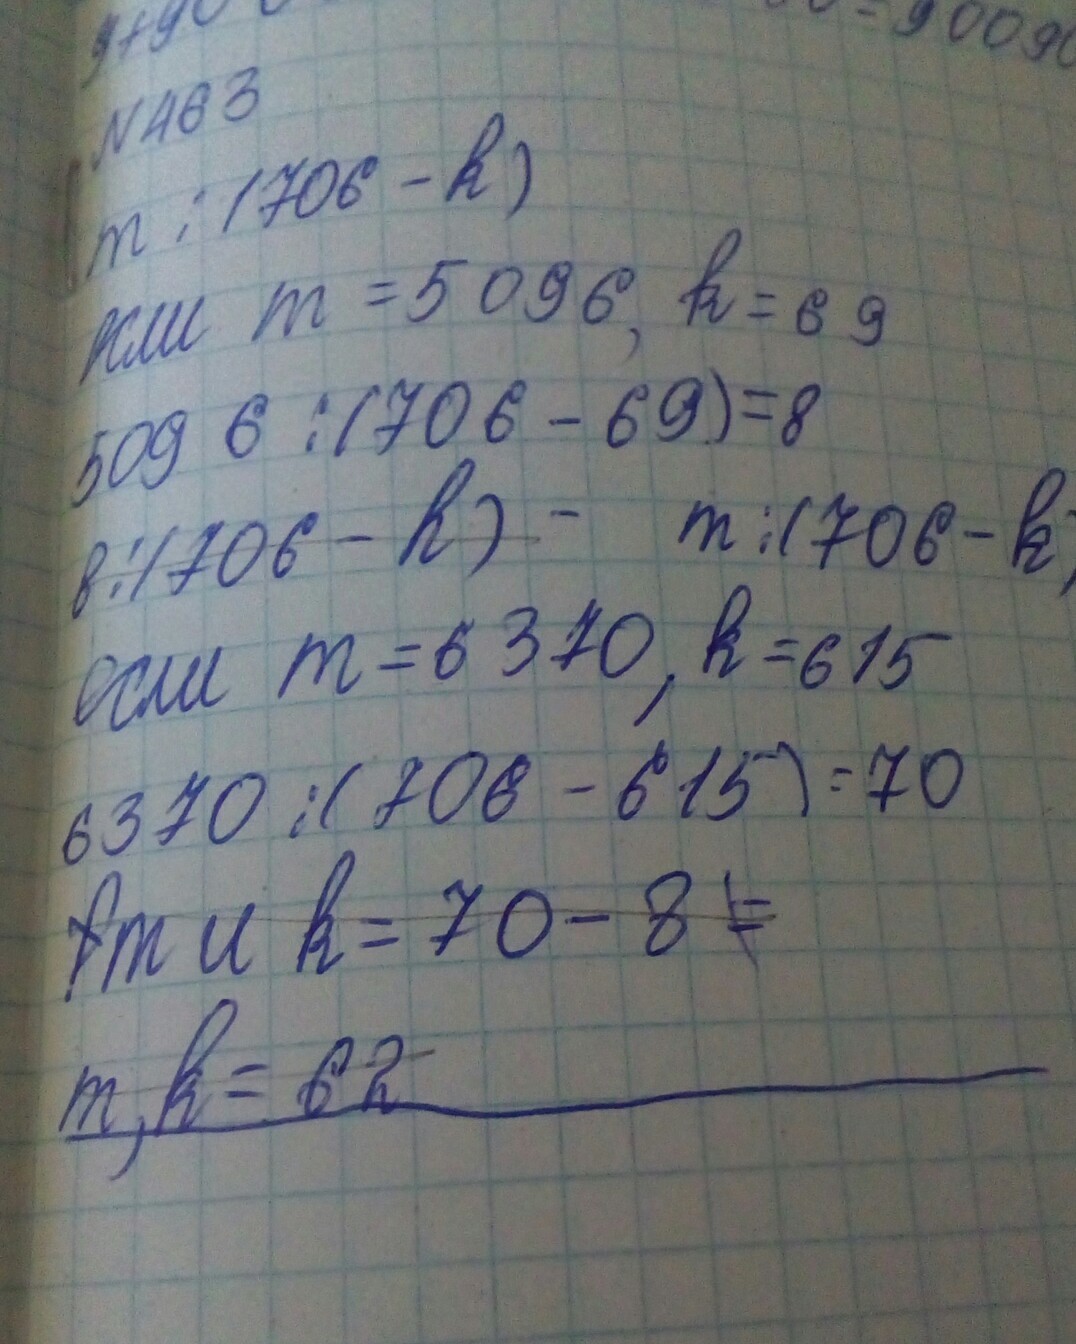 9+90 00=90090
N463
m:(706-k)
если m=5096, k=69
5096:(706-69)=8
в:(706-k) - m:(706-k)
если m=6370, k=615
6370:(706-615)=70
m и k=70-8=
m,k=62